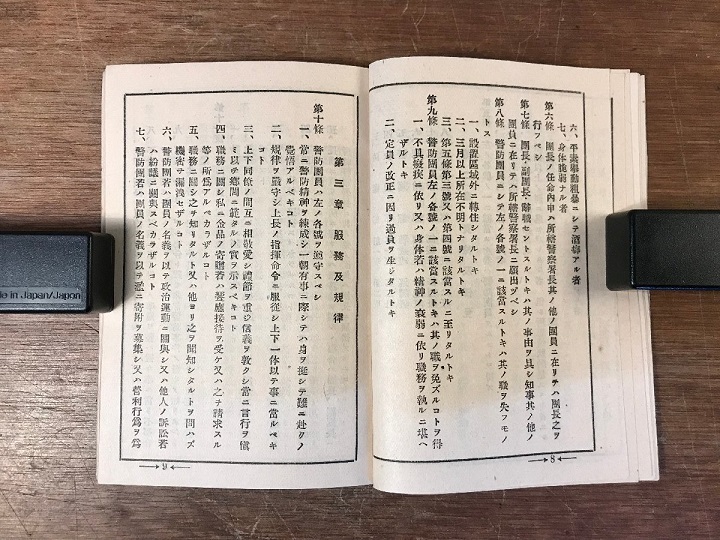 六、平素擧動粗暴ニシテ酒癖アル者
七、身体脆弱ナル者
第六條 團長ノ任命內申ハ所轄警察署長其ノ他ノ團員ニ在リテハ團長之ヲ
行フベシ
第七條 團長、副團長、辭職セントスルトキハ其ノ事由ヲ具シ知事其ノ他ノ
團員ニ在リテハ所轄警察署長ニ願出ヅベシ
第八條 警防團員ニシテ左ノ各號ノ一ニ該當スルトキハ其ノ職ヲ失フモノ
トス
一、設置區域外ニ轉住シタルトキ
二、三月以上所在不明トナリタルトキ
三、第五條第三號又ハ第四號ニ該當スルニ至リタルトキ
第九條 警防團員左ノ各號ノ一ニ該當スルトキハ其ノ職ヲ免ズルコトヲ得
一、不具癈疾ニ依リ又ハ身体若ハ精神ノ衰弱ニ依リ職務ヲ執ルニ堪ヘ
ザルトキ
二、定員ノ改正ニ因リ過員ヲ生ジタルトキ
8
第三章 服務及規律
第十條 警防團員ハ左ノ各號ヲ遵守スベシ
一、常ニ警防精神ヲ練成シ一朝有事ニ際シテハ身ヲ挺シテ難ニ赴クノ
覺悟アルベキコト
二、規律ヲ嚴守シ上長ノ指揮命令ニ服從シ上下一体以テ事ニ當ルベキ
コト
三、上下同僚ノ間互ニ相敬愛シ禮節ヲ重ジ信義ヲ敦クシ常ニ言行ヲ愼
ミ以テ鄕閭ニ範タルノ實ヲ示スベキコト
四、職務ニ關シ私ニ金品ノ寄贈若ハ饗應接待ヲ受ケ又ハ之ヲ請求スル
等ノ所爲アルベカラザルコト
五、職務ニ關シ之ヲ知リタルト又ハ他ヨリ之ヲ聞知シタルトヲ問ハズ
機密ヲ漏洩セザルコト
六、警防團若ハ團員ノ名義ヲ以テ政治運動ニ關與シ又ハ他人ノ訴訟若
ハ紛議ニ關與スベカラザルコト
七、警防團若ハ團員ノ名義ヲ以テ濫ニ寄附ヲ募集シ又ハ營利行爲ヲ爲
9
de in Japan/Japon